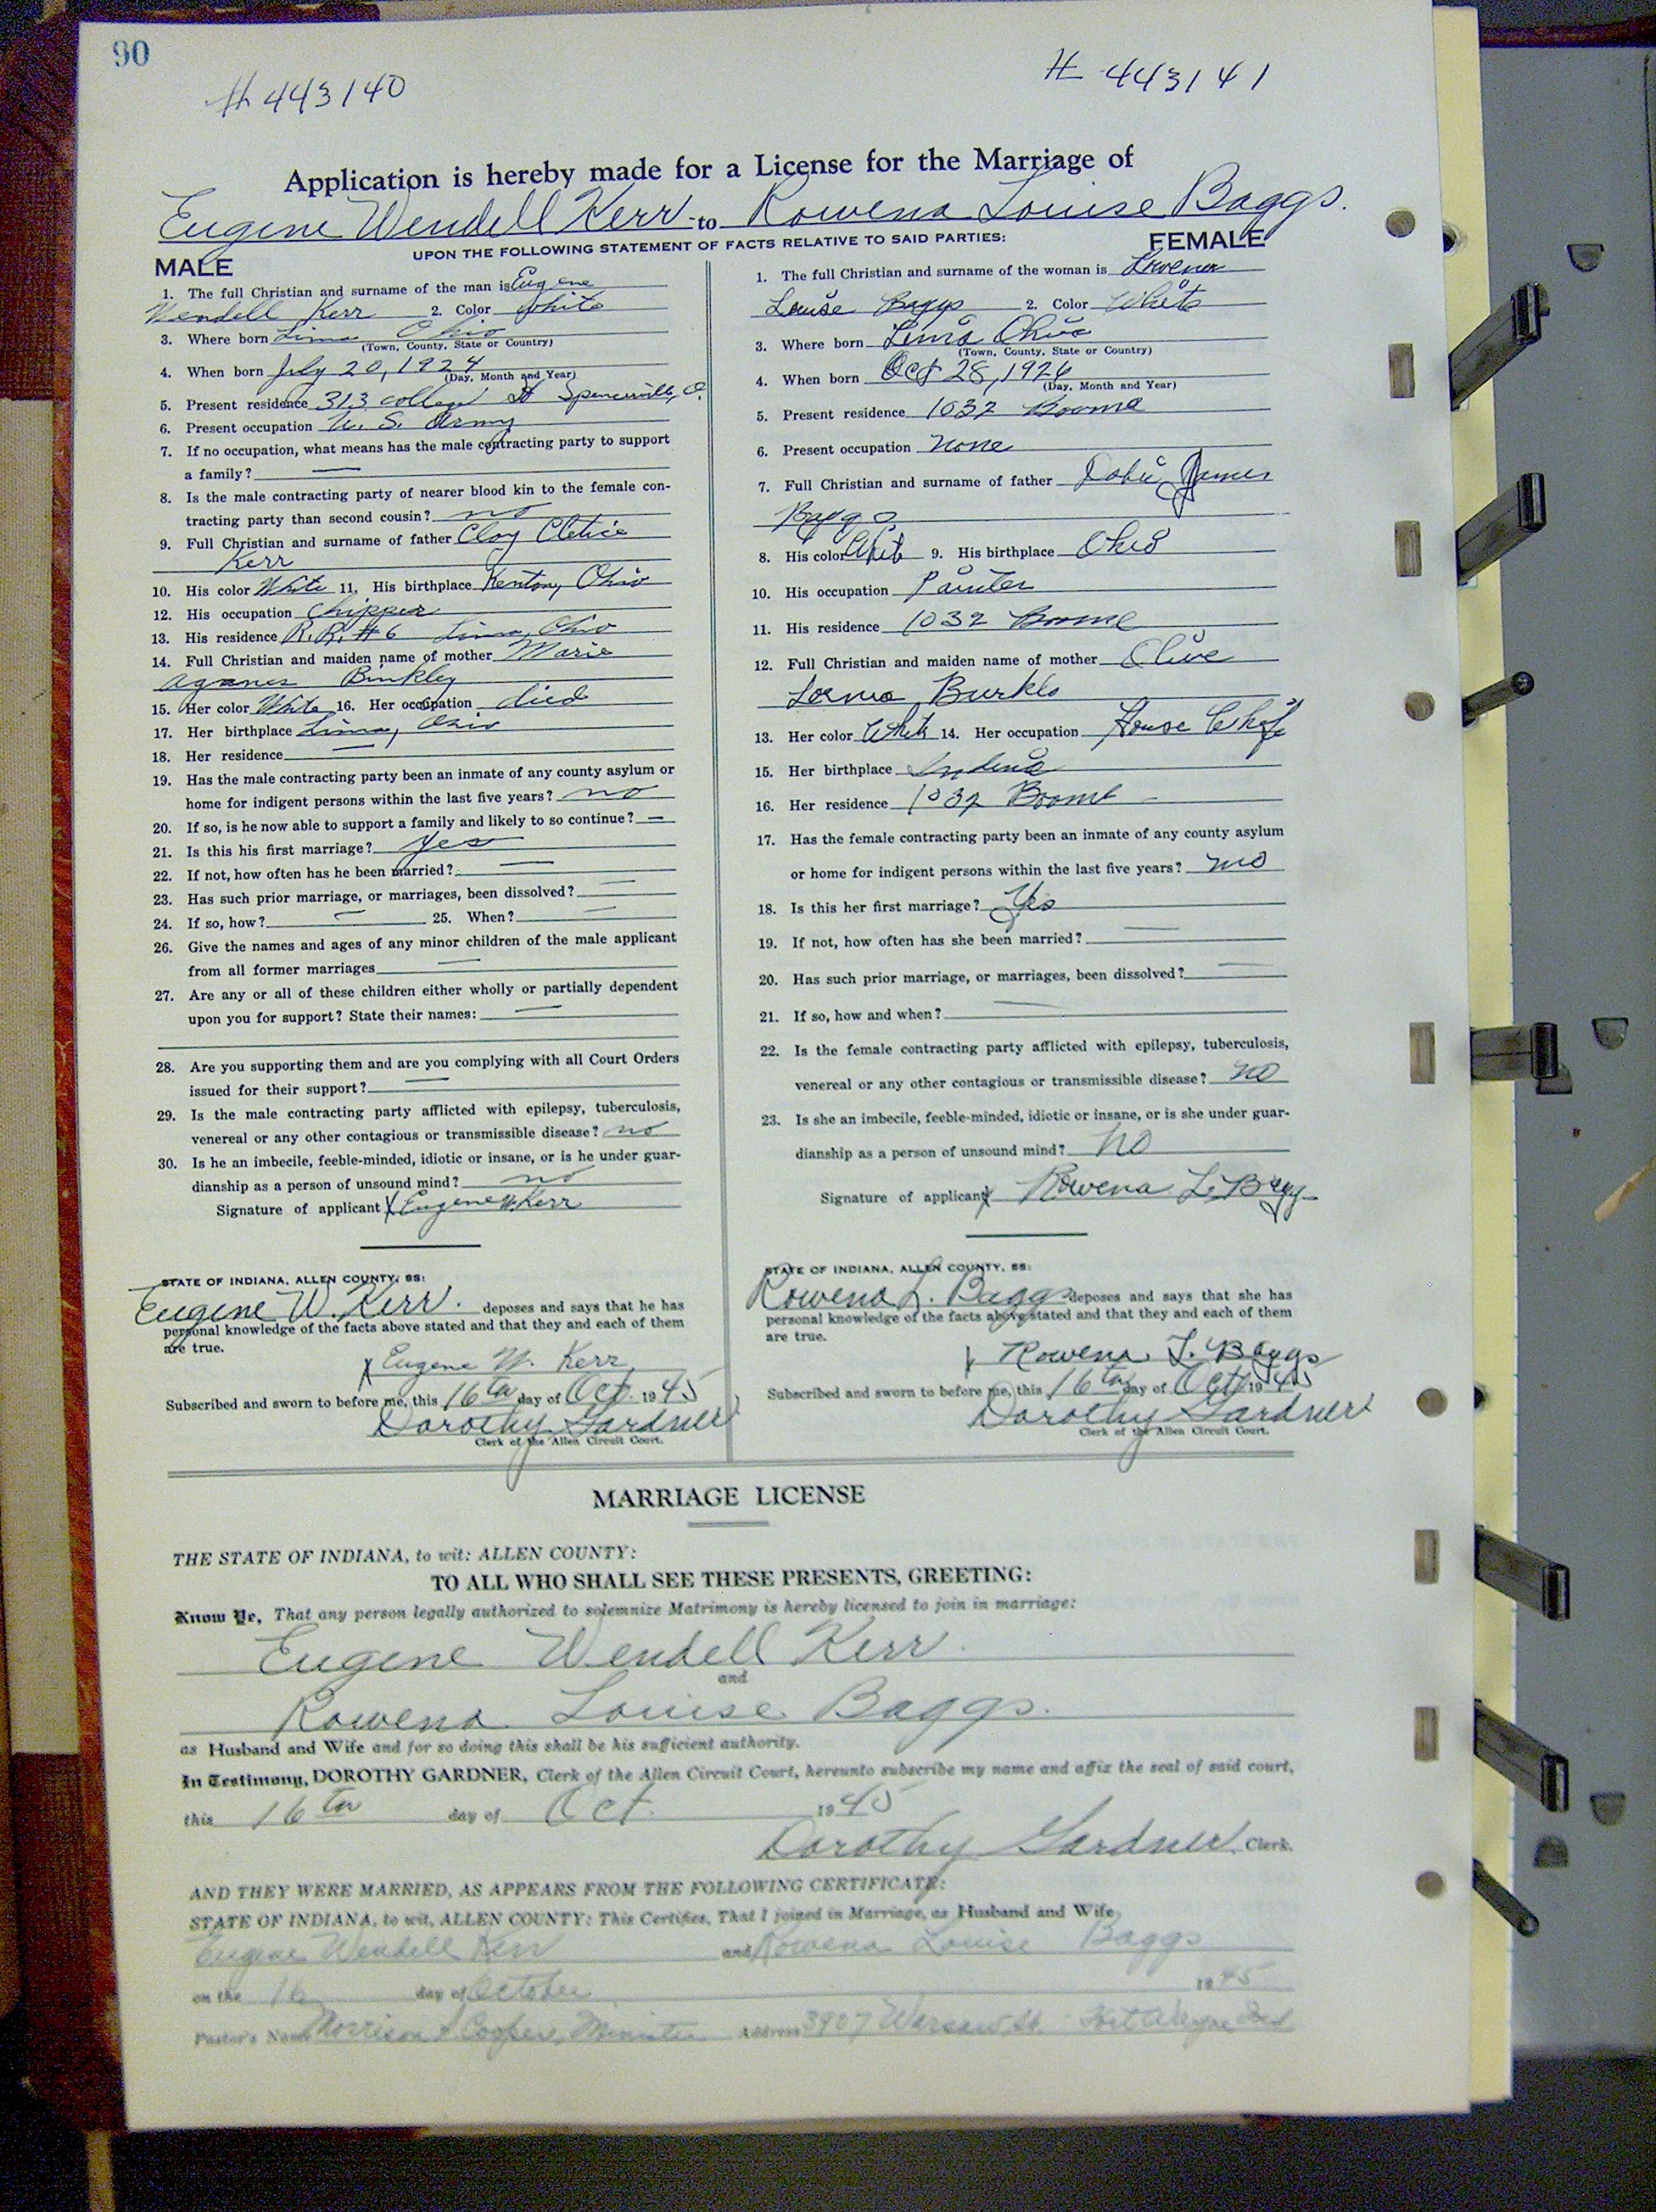 90
# 443140
# 443141
Application is hereby made for a License for the Marriage of
Eugene Wendell Kerr to Rowena Louise Baggs.
UPON THE FOLLOWING STATEMENT OF FACTS RELATIVE TO SAID PARTIES:
MALE
1. The full Christian and surname of the man is Eugene
Wendell Kerr 2. Color White
3. Where born Lima Ohio
(Town, County, State or Country)
4. When born July 20, 1924
(Day, Month and Year)
5. Present residence 313 College St Spencerville, O.
6. Present occupation U. S. Army
7. If no occupation, what means has the male contracting party to support
a family? —
8. Is the male contracting party of nearer blood kin to the female con-
tracting party than second cousin? no
9. Full Christian and surname of father Cloy
Kerr
10. His color White 11. His birthplace Kenton, Ohio
12. His occupation Chipper
13. His residence R. R. #6 Lima, Ohio
14. Full Christian and maiden name of mother Marie
Binkley
15. Her color White 16. Her occupation died
17. Her birthplace Lima, Ohio
18. Her residence —
19. Has the male contracting party been an inmate of any county asylum or
home for indigent persons within the last five years? no
20. If so, is he now able to support a family and likely to so continue? —
21. Is this his first marriage? Yes
22. If not, how often has he been married? —
23. Has such prior marriage, or marriages, been dissolved? —
24. If so, how? — 25. When? —
26. Give the names and ages of any minor children of the male applicant
from all former marriages —
27. Are any or all of these children either wholly or partially dependent
upon you for support? State their names: —
28. Are you supporting them and are you complying with all Court Orders
issued for their support? —
29. Is the male contracting party afflicted with epilepsy, tuberculosis,
venereal or any other contagious or transmissible disease? no
30. Is he an imbecile, feeble-minded, idiotic or insane, or is he under guar-
dianship as a person of unsound mind? no
Signature of applicant X Eugene W. Kerr
STATE OF INDIANA, ALLEN COUNTY, SS:
Eugene W. Kerr. deposes and says that he has
personal knowledge of the facts above stated and that they and each of them
are true.
X Eugene W. Kerr
Subscribed and sworn to before me, this 16th day of Oct. 1945
Dorothy Gardner
Clerk of the Allen Circuit Court.
FEMALE
1. The full Christian and surname of the woman is Rowena
Louise Baggs 2. Color White
3. Where born Lima Ohio
(Town, County, State or Country)
4. When born Oct 28, 1926
(Day, Month and Year)
5. Present residence 1032
6. Present occupation none
7. Full Christian and surname of father James
Baggs
8. His color White 9. His birthplace Ohio
10. His occupation Painter
11. His residence 1032
12. Full Christian and maiden name of mother Olive
13. Her color White 14. Her occupation House Wife
15. Her birthplace Indiana
16. Her residence 1032
17. Has the female contracting party been an inmate of any county asylum
or home for indigent persons within the last five years? no
18. Is this her first marriage? Yes
19. If not, how often has she been married? —
20. Has such prior marriage, or marriages, been dissolved? —
21. If so, how and when? —
22. Is the female contracting party afflicted with epilepsy, tuberculosis,
venereal or any other contagious or transmissible disease? no
23. Is she an imbecile, feeble-minded, idiotic or insane, or is she under guar-
dianship as a person of unsound mind? no
Signature of applicant X Rowena L. Baggs
STATE OF INDIANA, ALLEN COUNTY, SS:
Rowena L. Baggs deposes and says that she has
personal knowledge of the facts above stated and that they and each of them
are true.
X Rowena L. Baggs
Subscribed and sworn to before me, this 16th day of Oct 1945
Dorothy Gardner
Clerk of the Allen Circuit Court.
MARRIAGE LICENSE
THE STATE OF INDIANA, to wit: ALLEN COUNTY:
TO ALL WHO SHALL SEE THESE PRESENTS, GREETING:
Know Ye, That any person legally authorized to solemnize Matrimony is hereby licensed to join in marriage:
Eugene Wendell Kerr.
and
Rowena Louise Baggs.
as Husband and Wife and for so doing this shall be his sufficient authority.
In Testimony, DOROTHY GARDNER, Clerk of the Allen Circuit Court, hereunto subscribe my name and affix the seal of said court,
this 16th day of Oct. 1945
Dorothy Gardner, Clerk.
AND THEY WERE MARRIED, AS APPEARS FROM THE FOLLOWING CERTIFICATE:
STATE OF INDIANA, to wit, ALLEN COUNTY: This Certifies, That I joined in Marriage, as Husband and Wife,
Eugene Wendell Kerr and Rowena Louise Baggs
on the 16 day of October 1945
Pastor's Name Morrison Cooper, Minister Address 3907 Warsaw St. Fort Wayne Ind